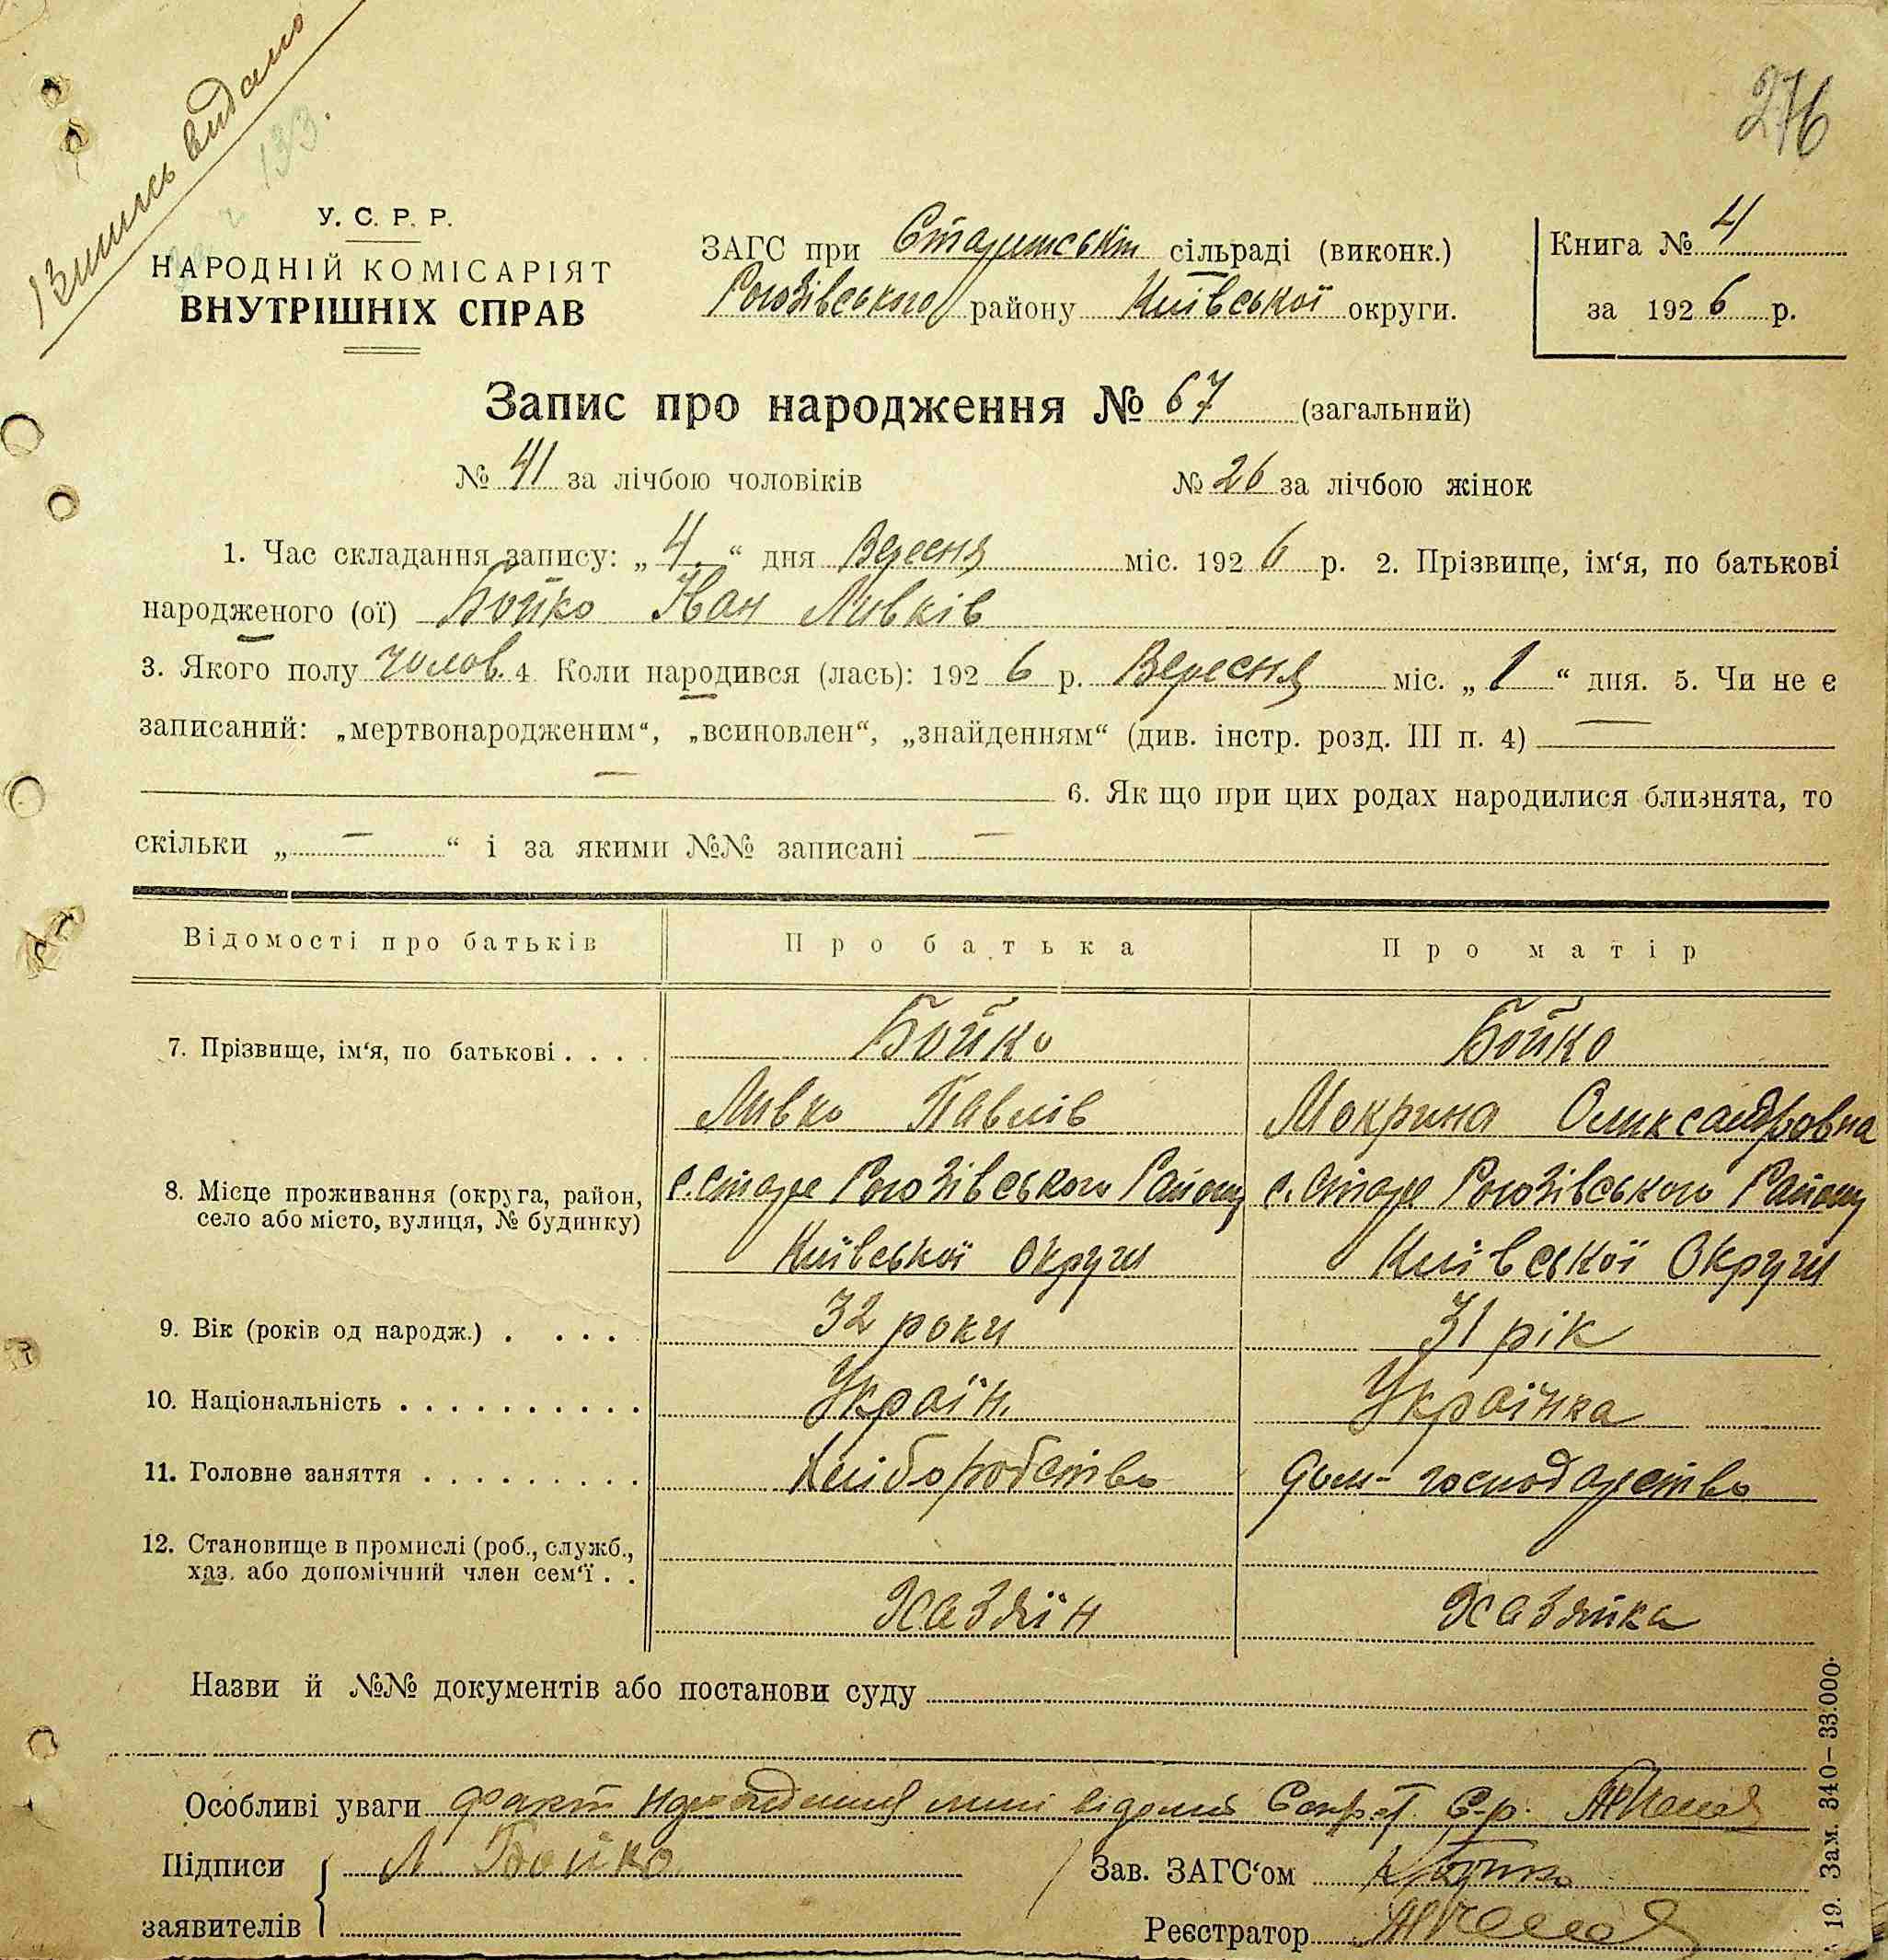 276
видано
133.
У. С. Р. Р.
НАРОДНІЙ КОМІСАРІЯТ
ВНУТРІШНІХ СПРАВ
ЗАГС при Старимській сільраді (виконк.)
Рогозівського району Київської округи.
Книга № 4
за 1926 р.
Запис про народження № 67 (загальний)
№ 41 за лічбою чоловіків № 26 за лічбою жінок
1. Час складання запису: „4“ дня Вересня міс. 1926 р. 2. Прізвище, ім‘я, по батькові
народженого (ої) Бойко Іван Ливків
3. Якого полу чолов. 4 Коли народився (лась): 1926 р. Вересня міс. „1“ дня. 5. Чи не є
записаний: „мертвонародженим“, „всиновлен“, „знайденням“ (див. інстр. розд. III п. 4) —
— 6. Як що при цих родах народилися близнята, то
скільки „—“ і за якими №№ записані —
Відомості про батьків Про батька Про матір
7. Прізвище, ім‘я, по батькові . . . . Бойко Бойко
Ливко Павлів Мокрина Олександровна
8. Місце проживання (округа, район, с. Старе Рогозівського Району с. Старе Рогозівського Району
село або місто, вулиця, № будинку)
Київської Округи Київської Округи
9. Вік (років од народж.) . . . . 32 роки 31 рік
10. Національність . . . . . . . . . . Україн. Українка
11. Головне заняття . . . . . . . . . Хліборобство Дом-господарство
12. Становище в промислі (роб., служб.,
хаз. або допомічний член сем‘ї . .
Хазяїн Хазяйка
Назви й №№ документів або постанови суду
Особливі уваги факт народження мені відомий Секрет. С-р.
Підписи Л Бойко Зав. ЗАГС‘ом
заявителів Реєстратор
19. Зам. 340—33.000.